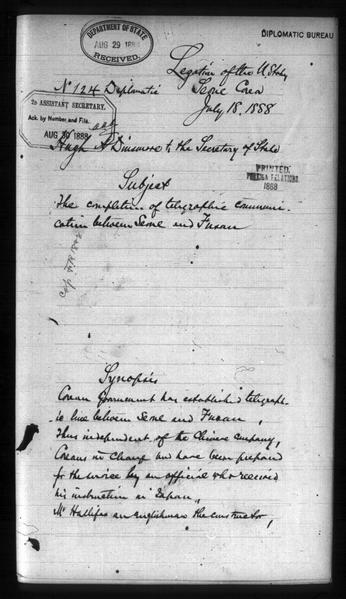 DEPARTMENT OF STATE
AUG 29 1888
RECEIVED.
DIPLOMATIC BUREAU
Legation of the U. States
No 124 Diplomatic Seoul Corea
July 18, 1888
2D ASSISTANT SECRETARY.
Ack. by Number, and File.
AUG 30 1888
Hugh A Dinsmore to the Secretary of State
PRINTED.
FOREIGN RELATIONS.
1888
Subject
The completion of telegraphic communi-
cation between Seoul and Fusan
Synopsis
Corean Government has established telegraph-
ic line between Seoul and Fusan,
Thus independent of the Chinese company,
Coreans in charge who have been prepared
for the service by an official who received
his instruction in Japan,
Mr Hallifax an Englishman the constructor,